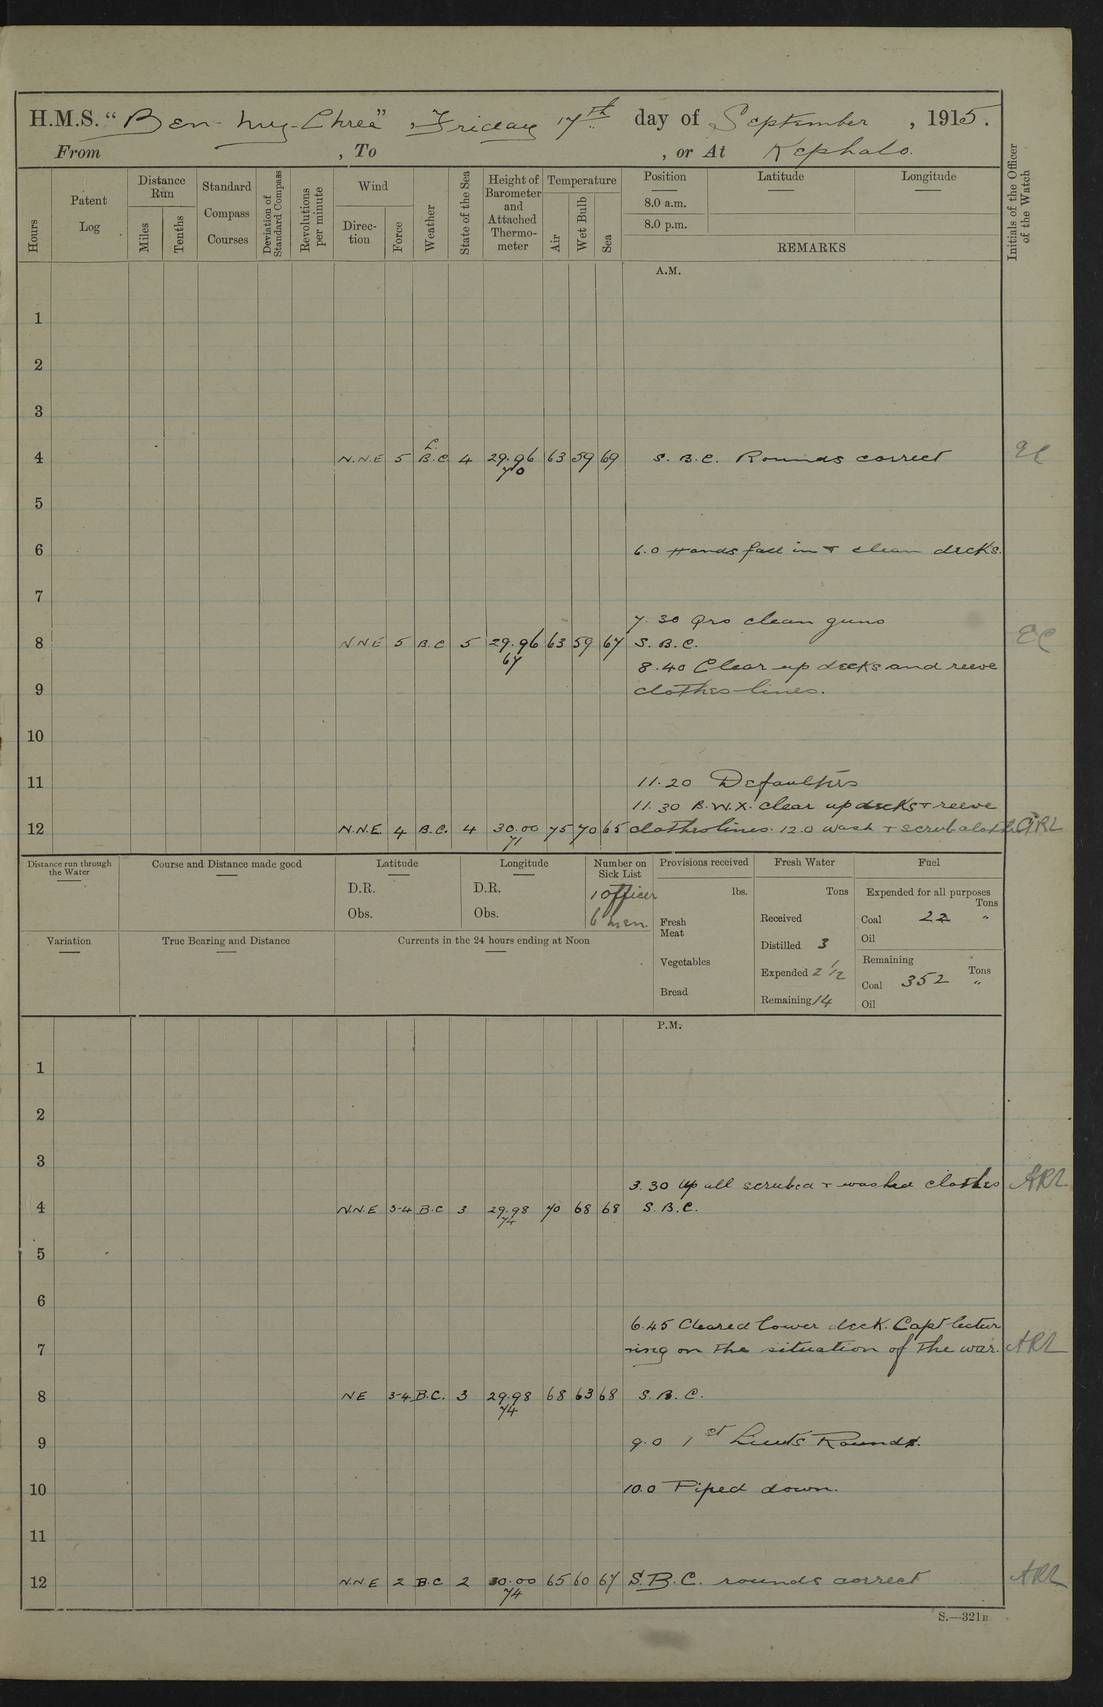 H.M.S. "Ben-my-Chree", Friday 17th day of September, 1915.
From , To , or At Kephalo.
Hours
Patent Log
Distance Run
Miles
Tenths
Standard Compass Courses
Deviation of Standard Compass
Revolutions per minute
Wind
Direction
Force
Weather
State of the Sea
Height of Barometer and Attached Thermometer
Temperature
Air
Wet Bulb
Sea
Position
Latitude
Longitude
8.0 a.m.
8.0 p.m.
REMARKS
Initials of the Officer of the Watch
A.M.
1
2
3
4 N.N.E 5 B.C. 4 29.96 70 63 59 69 S. B. C. Rounds correct
5
6 6.0 Hands fall in + clean decks.
7
7.30 Qrs clean guns
8 NNE 5 B.C 5 29.96 67 63 59 67 S. B. C. EC
8.40 Clear up decks and reeve
9 clothes-lines.
10
11 11.20 Defaulters
11.30 B.W.X. clear up decks + reeve
12 N.N.E 4 B.C. 4 30.00 71 75 70 65 clothes lines. 12.0 wash + scrub clothes ARL
Distance run through the Water
Course and Distance made good
Latitude
D.R.
Obs.
Longitude
D.R.
Obs.
Number on Sick List
1 officer
6 men
Provisions received
lbs.
Fresh Meat
Vegetables
Bread
Fresh Water
Tons
Received
Distilled 3
Expended 2 1/2
Remaining 14
Fuel
Expended for all purposes
Tons
Coal 22 "
Oil
Remaining
Tons
Coal 352 "
Oil
Variation
True Bearing and Distance
Currents in the 24 hours ending at Noon
P.M.
1
2
3
3.30 Up all scrubed + washed clothes ARL
4 N.N.E 3-4 B.C 3 29.98 74 70 68 68 S. B. C.
5
6
6.45 Cleared lower deck. Capt lectur
7 ring on the situation of the war. ARL
8 NE 3-4 B.C. 3 29.98 74 68 63 68 S. B. C.
9 9.0 1st Lieut's Rounds.
10 10.0 Piped down.
11
12 N.N E 2 B.C 2 30.00 74 65 60 67 S.B.C. rounds correct ARL
S.—321B